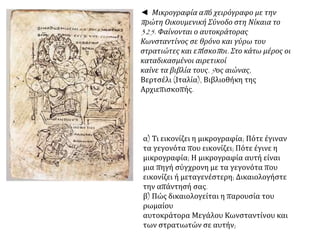 ◄ Μικρογραφία από χειρόγραφο με την
πρώτη Οικουμενική Σύνοδο στη Νίκαια το
325. Φαίνονται ο αυτοκράτορας
Κωνσταντίνος σε θρόνο και γύρω του
στρατιώτες και επίσκοποι. Στο κάτω μέρος οι
καταδικασμένοι αιρετικοί
καίνε τα βιβλία τους. 9ος αιώνας,
Βερτσέλι (Ιταλία), Βιβλιοθήκη της
Αρχιεπισκοπής.
α) Τι εικονίζει η μικρογραφία; Πότε έγιναν
τα γεγονότα που εικονίζει; Πότε έγινε η
μικρογραφία; Η μικρογραφία αυτή είναι
μια πηγή σύγχρονη με τα γεγονότα που
εικονίζει ή μεταγενέστερη; Δικαιολογήστε
την απάντησή σας.
β) Πώς δικαιολογείται η παρουσία του
ρωμαίου
αυτοκράτορα Μεγάλου Κωνσταντίνου και
των στρατιωτών σε αυτήν;